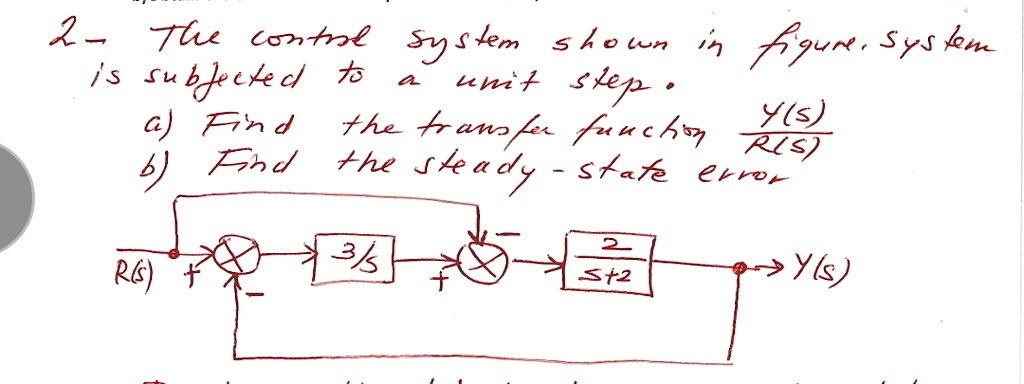 2- The control system shown in figure. System
is subjected to a unit step.
a) Find the transfer function Y(s)/R(s)
b) Find the steady-state error
R(s) + - 3/s + - 2/(s+2) Y(s)